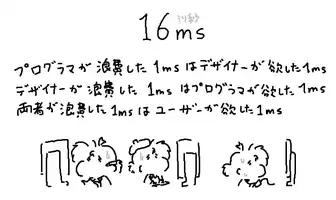 16ms
プログラマが浪費した1msはデザイナーが欲した1ms
デザイナーが浪費した1msはプログラマが欲した1ms
両者が浪費した1msはユーザーが欲した1ms